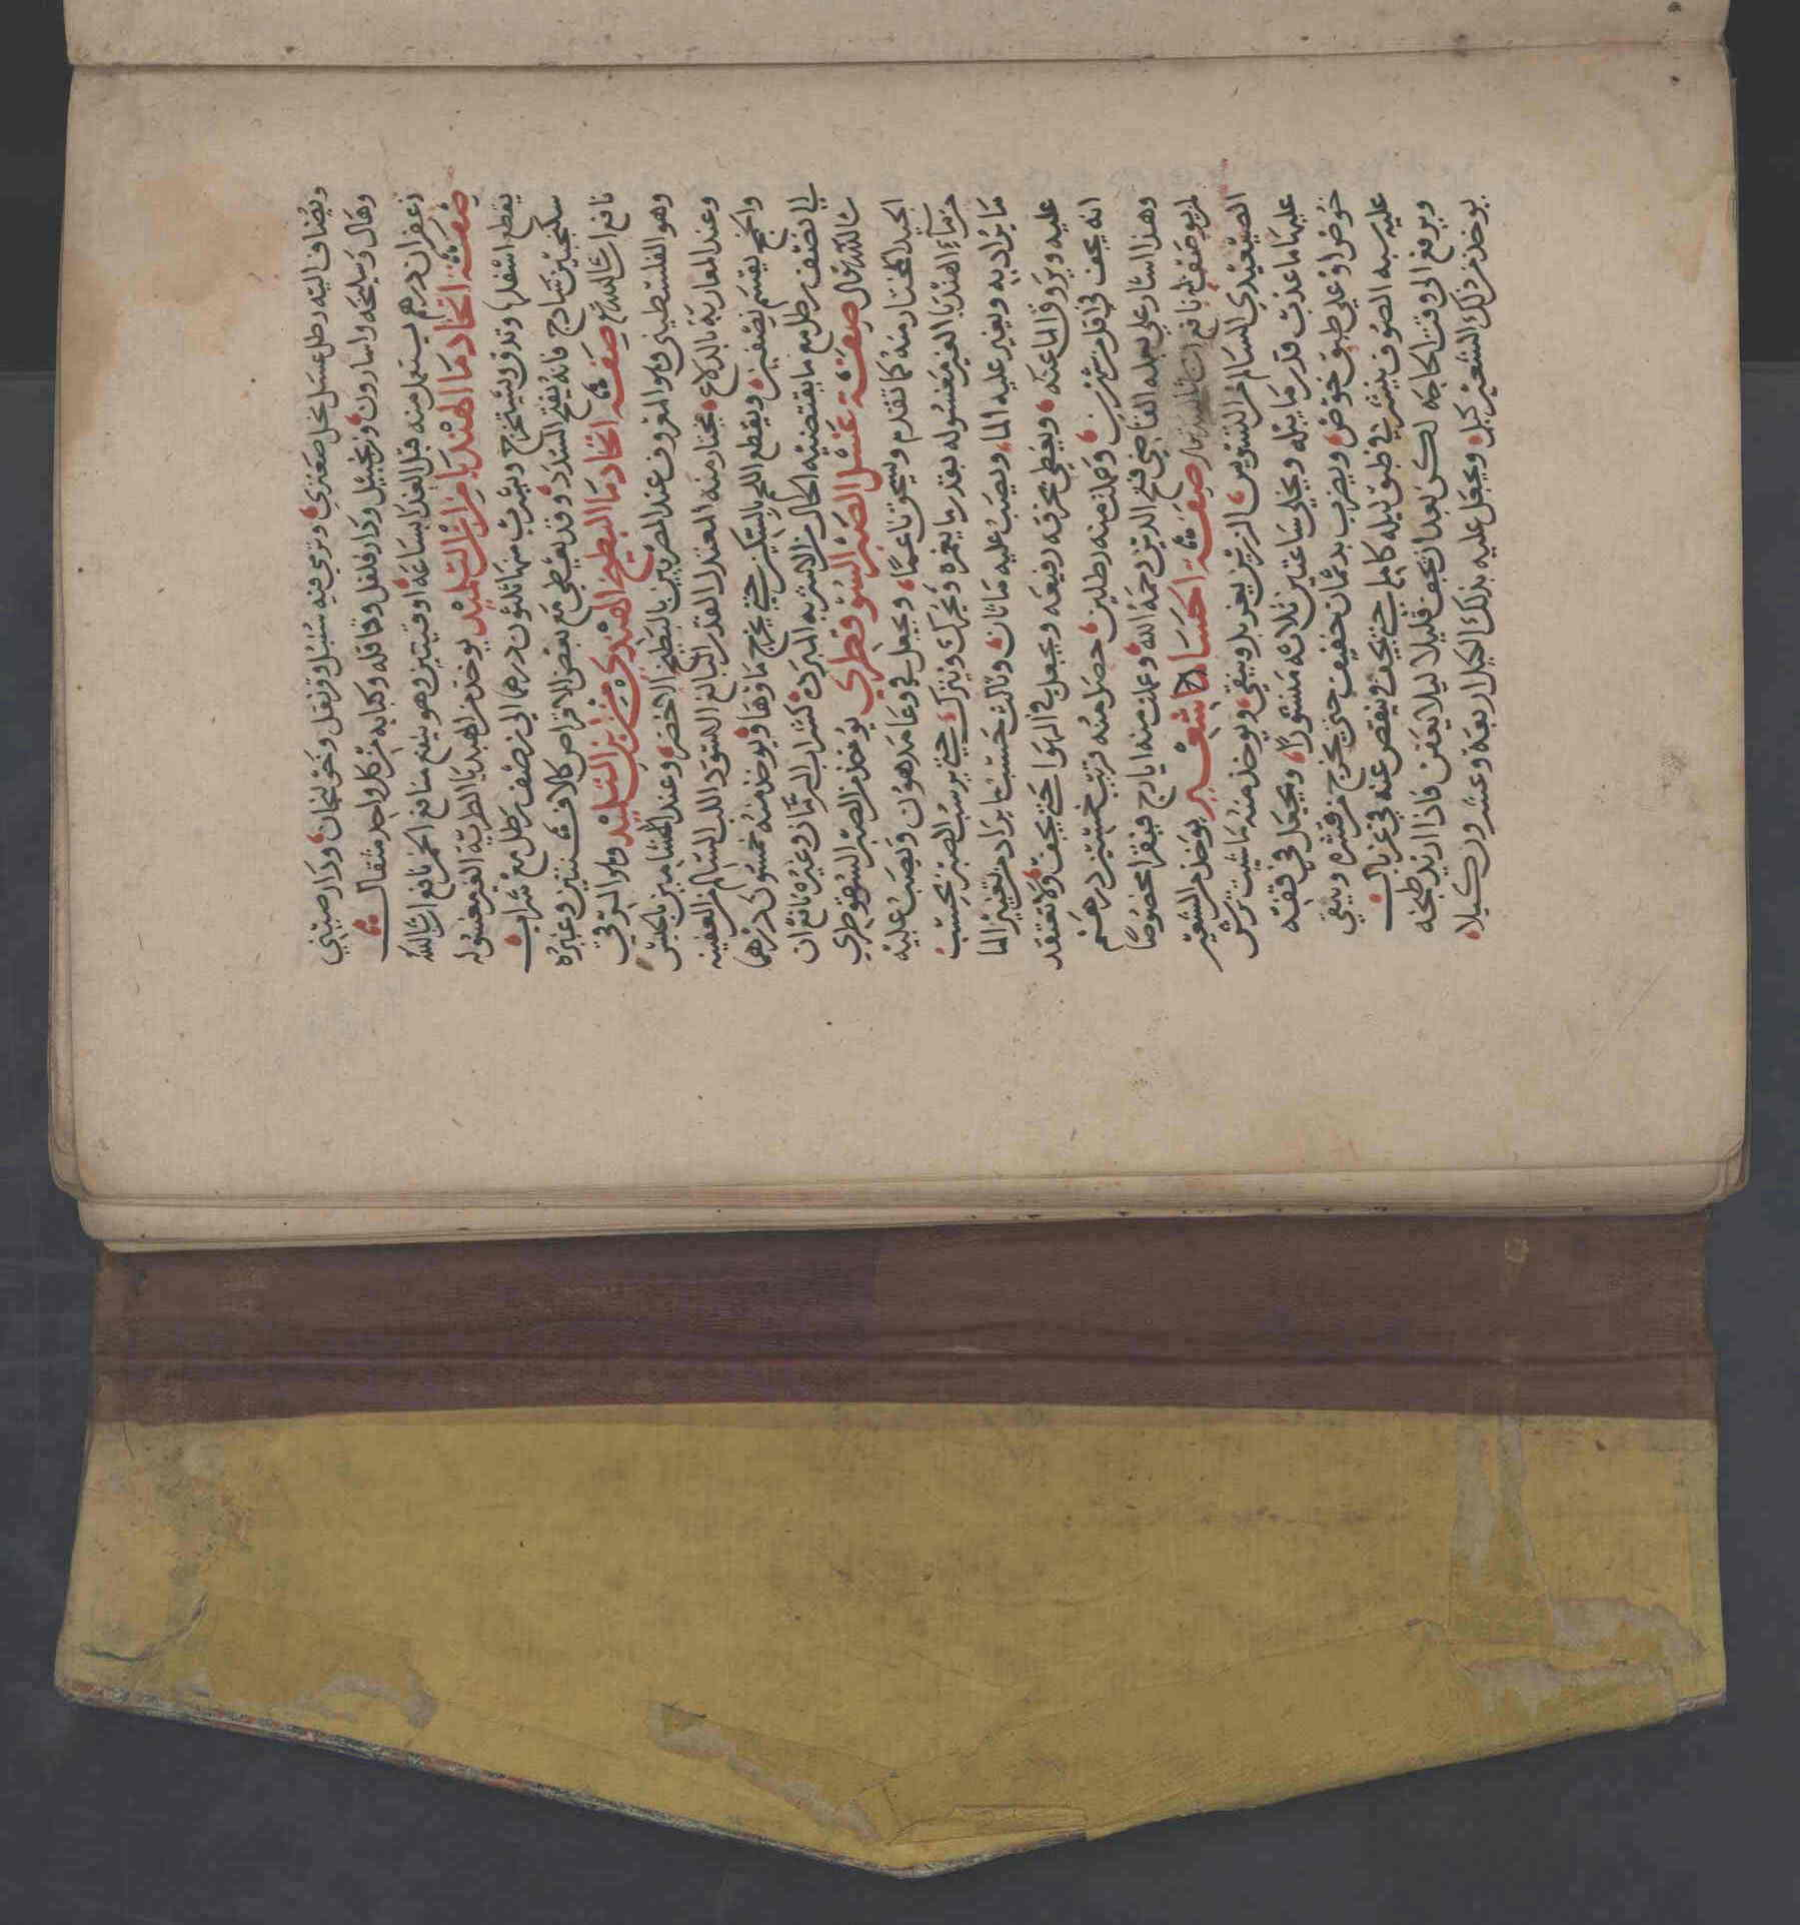 ويضاف اليه رطل عسل نحل صعتري وترمي فيه سنبل وقرنفل وخولنجان ودارصيني
وهال وسليخه واسارون وزنجبيل ودارفلفل وقاقله وكبابه من كل واحد مثقال
زعفران درهم يستعمل منه قبل الغذا بساعة اوقيتين وهو ينفع منافع الخمر نافع ان شا الله
صفة اتخاد ما الهندبا من اشرات التلميد يوخذ من الهندبا الطرية الغير مغسوله
يقطع اسفلها وتدق ويستخرج ويشرب منها ثلثون درهما الى نصف رطل مع شراب
سكنجبين ساذج فانه يفتح السدد وقد يعطي مع بعض الاقراص كالافسنتين وغيره
نافع ان شا الله تع صفة اتخاد ما البطيخ الهندي من التلميد وهو الرقي
وهو الفلسطيني وهو المعروف عند المصريين بالبطيخ الاخضر وعند الشاميين بالجبس
وعند المغاربة بالدلاع يختار منه المعتدل القدر البالغ الاسود اللب السالم من العفن
والحمج يقسم نصفين ويقطع اللحم بالسكين حتي يخرج ماوها ويوخذ منه خمسون درهما
الي نصف رطل مع ما يقتضيه الحال من الاشربه المبرده كشراب الرمان وغيره نافع ان
شا الله تعالى صفة غسل الصبر السوقطري يوخذ من الصبر السقوطري
الجيد المختار منه كما تقدم ويسحق ناعما ويجعل في وعا مدهون ويصب عليه
من ماء الهندبا الغير مغسوله بقدر ما يغمره ويحرك ويترك حتي يرسب الصبر بحسب
ما يراد به ويغير عليه الما ويصب عليه ما ثان وثالث حسب ما يراد من تغيير الما
عليه ويروق الما عنه ويغطي بخرقه رفيعه ويجعل في الهوا حتي يجف ولا تعتقد
انه يجف في اقل من شهرين وعملت منه رطلين حصل منه قريب خمسين درهم
وهذا اشار علي بعمله القاضي فتح الدين رحمه الله وعملت منه ايارج فيقرا مخصوصا
لمن يوصف له نافع صفة احسا كشك شعير يوخذ من الشعير
الصعيدي السالم من السوس الرزين يغربل وينقي ويوخذ منه ما شيت يرش
عليها ما عذب قدر ما يبله ويخلي ساعتين ثلاثه مستورا ويجعل في قفه
خوص او علي طبق خوص ويضرب بدقماق خفيف حتي يخرج من قشره وينقي
عليه سبه الصوف ينشر في طبق ليله كامله حتي يجف وينفض عنه في غربال
ويرفع الى وقت الحاجه لكن بعد ان يجف قليلا ليلا يعفن فاذا اريد طبخه
يوخذ من ذلك الشعير كيل ويجعل عليه بذلك الكيل اربعة وعشرون كيلا